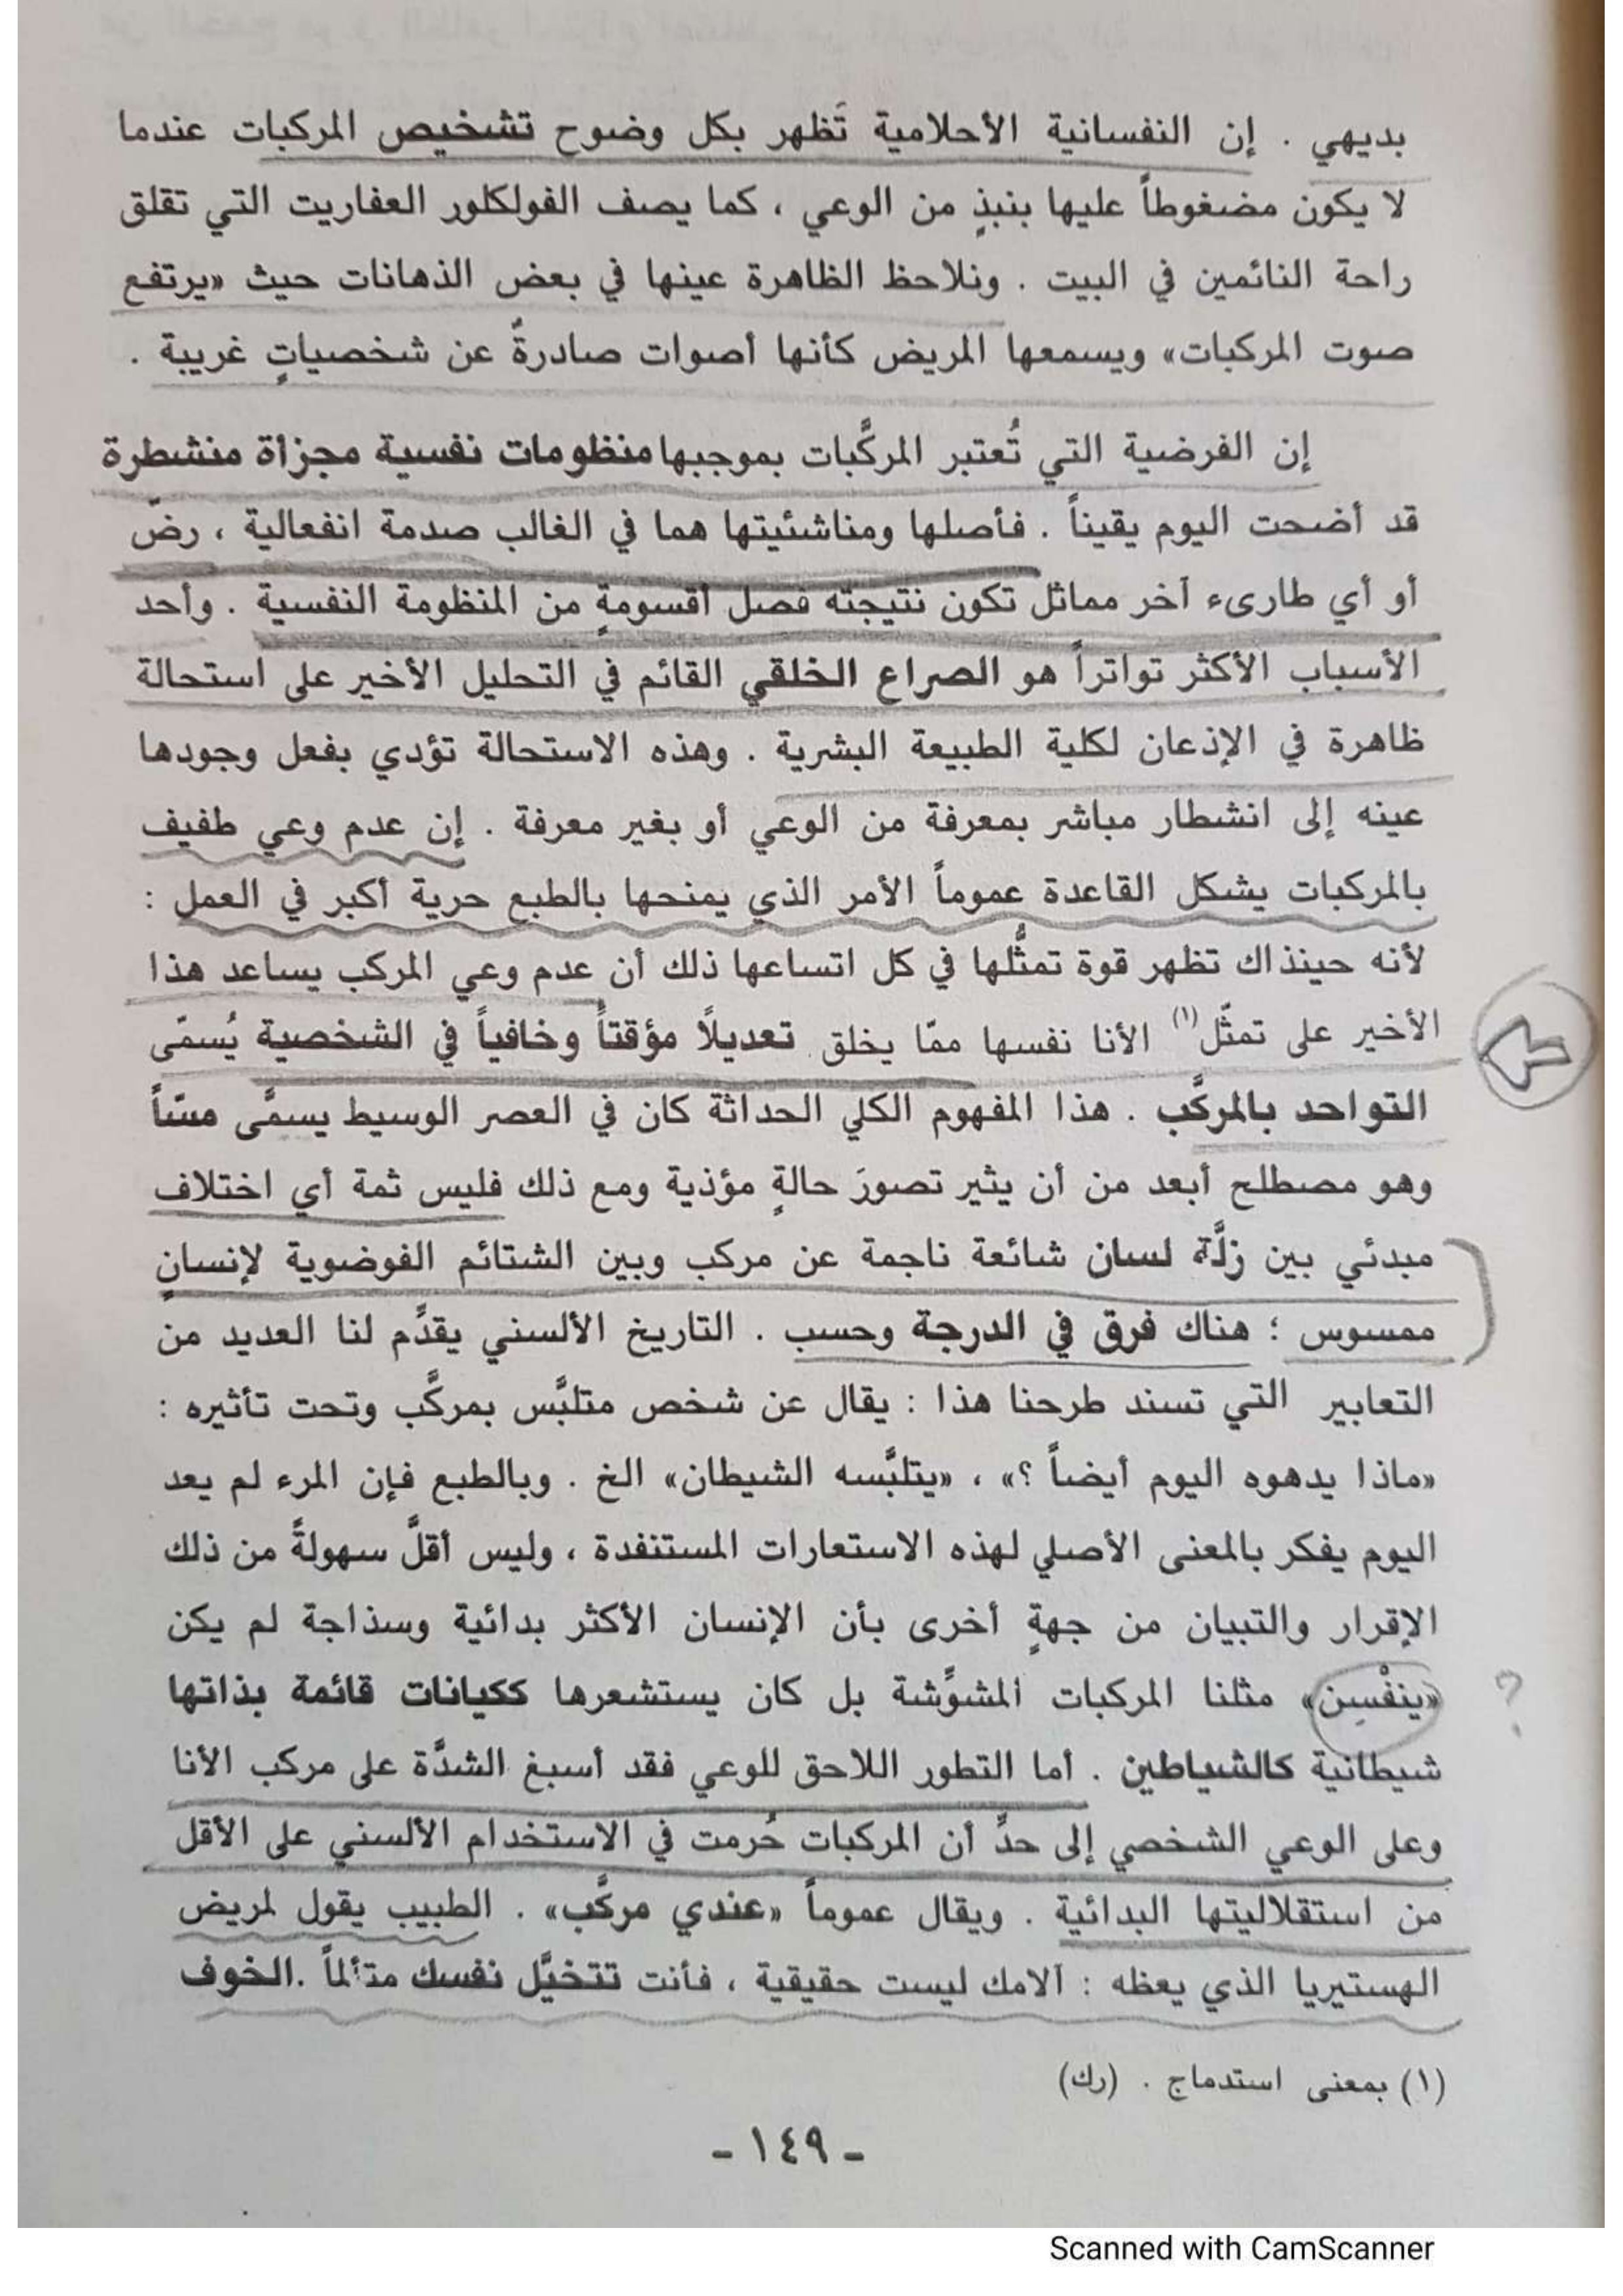 بديهي . إن النفسانية الأحلامية تَظهر بكل وضوح تشخيص المركبات عندما
لا يكون مضغوطاً عليها بنبذٍ من الوعي ، كما يصف الفولكلور العفاريت التي تقلق
راحة النائمين في البيت . ونلاحظ الظاهرة عينها في بعض الذهانات حيث «يرتفع
صوت المركبات» ويسمعها المريض كأنها أصوات صادرةٌ عن شخصياتٍ غريبة .
إن الفرضية التي تُعتبر المركَّبات بموجبها منظومات نفسية مجزأة منشطرة
قد أضحت اليوم يقيناً . فأصلها ومناشئيتها هما في الغالب صدمة انفعالية ، رضّ
أو أي طارىء آخر مماثل تكون نتيجته فصل أقسومةٍ من المنظومة النفسية . وأحد
الأسباب الأكثر تواتراً هو الصراع الخلقي القائم في التحليل الأخير على استحالة
ظاهرة في الإذعان لكلية الطبيعة البشرية . وهذه الاستحالة تؤدي بفعل وجودها
عينه إلى انشطار مباشر بمعرفة من الوعي أو بغير معرفة . إن عدم وعي طفيف
بالمركبات يشكل القاعدة عموماً الأمر الذي يمنحها بالطبع حرية أكبر في العمل :
لأنه حينذاك تظهر قوة تمثُّلها في كل اتساعها ذلك أن عدم وعي المركب يساعد هذا
الأخير على تمثّل(١) الأنا نفسها ممّا يخلق تعديلاً مؤقتاً وخافياً في الشخصية يُسمّى
التواحد بالمركَّب . هذا المفهوم الكلي الحداثة كان في العصر الوسيط يسمَّى مسّاً
وهو مصطلح أبعد من أن يثير تصورَ حالةٍ مؤذية ومع ذلك فليس ثمة أي اختلاف
مبدئي بين زلَّة لسان شائعة ناجمة عن مركب وبين الشتائم الفوضوية لإنسانٍ
ممسوس ؛ هناك فرق في الدرجة وحسب . التاريخ الألسني يقدِّم لنا العديد من
التعابير التي تسند طرحنا هذا : يقال عن شخص متلبَّس بمركَّب وتحت تأثيره :
«ماذا يدهوه اليوم أيضاً ؟» ، «يتلبَّسه الشيطان» الخ . وبالطبع فإن المرء لم يعد
اليوم يفكر بالمعنى الأصلي لهذه الاستعارات المستنفدة ، وليس أقلَّ سهولةً من ذلك
الإقرار والتبيان من جهةٍ أخرى بأن الإنسان الأكثر بدائية وسذاجة لم يكن
«ينفْسِن» مثلنا المركبات المشوِّشة بل كان يستشعرها ككيانات قائمة بذاتها
شيطانية كالشياطين . أما التطور اللاحق للوعي فقد أسبغ الشدَّة على مركب الأنا
وعلى الوعي الشخصي إلى حدِّ أن المركبات حُرمت في الاستخدام الألسني على الأقل
من استقلاليتها البدائية . ويقال عموماً «عندي مركَّب» . الطبيب يقول لمريض
الهستيريا الذي يعظه : آلامك ليست حقيقية ، فأنت تتخيَّل نفسك متألماً .الخوف
(١) بمعنى استدماج . (رك)
- ١٤٩ -
Scanned with CamScanner